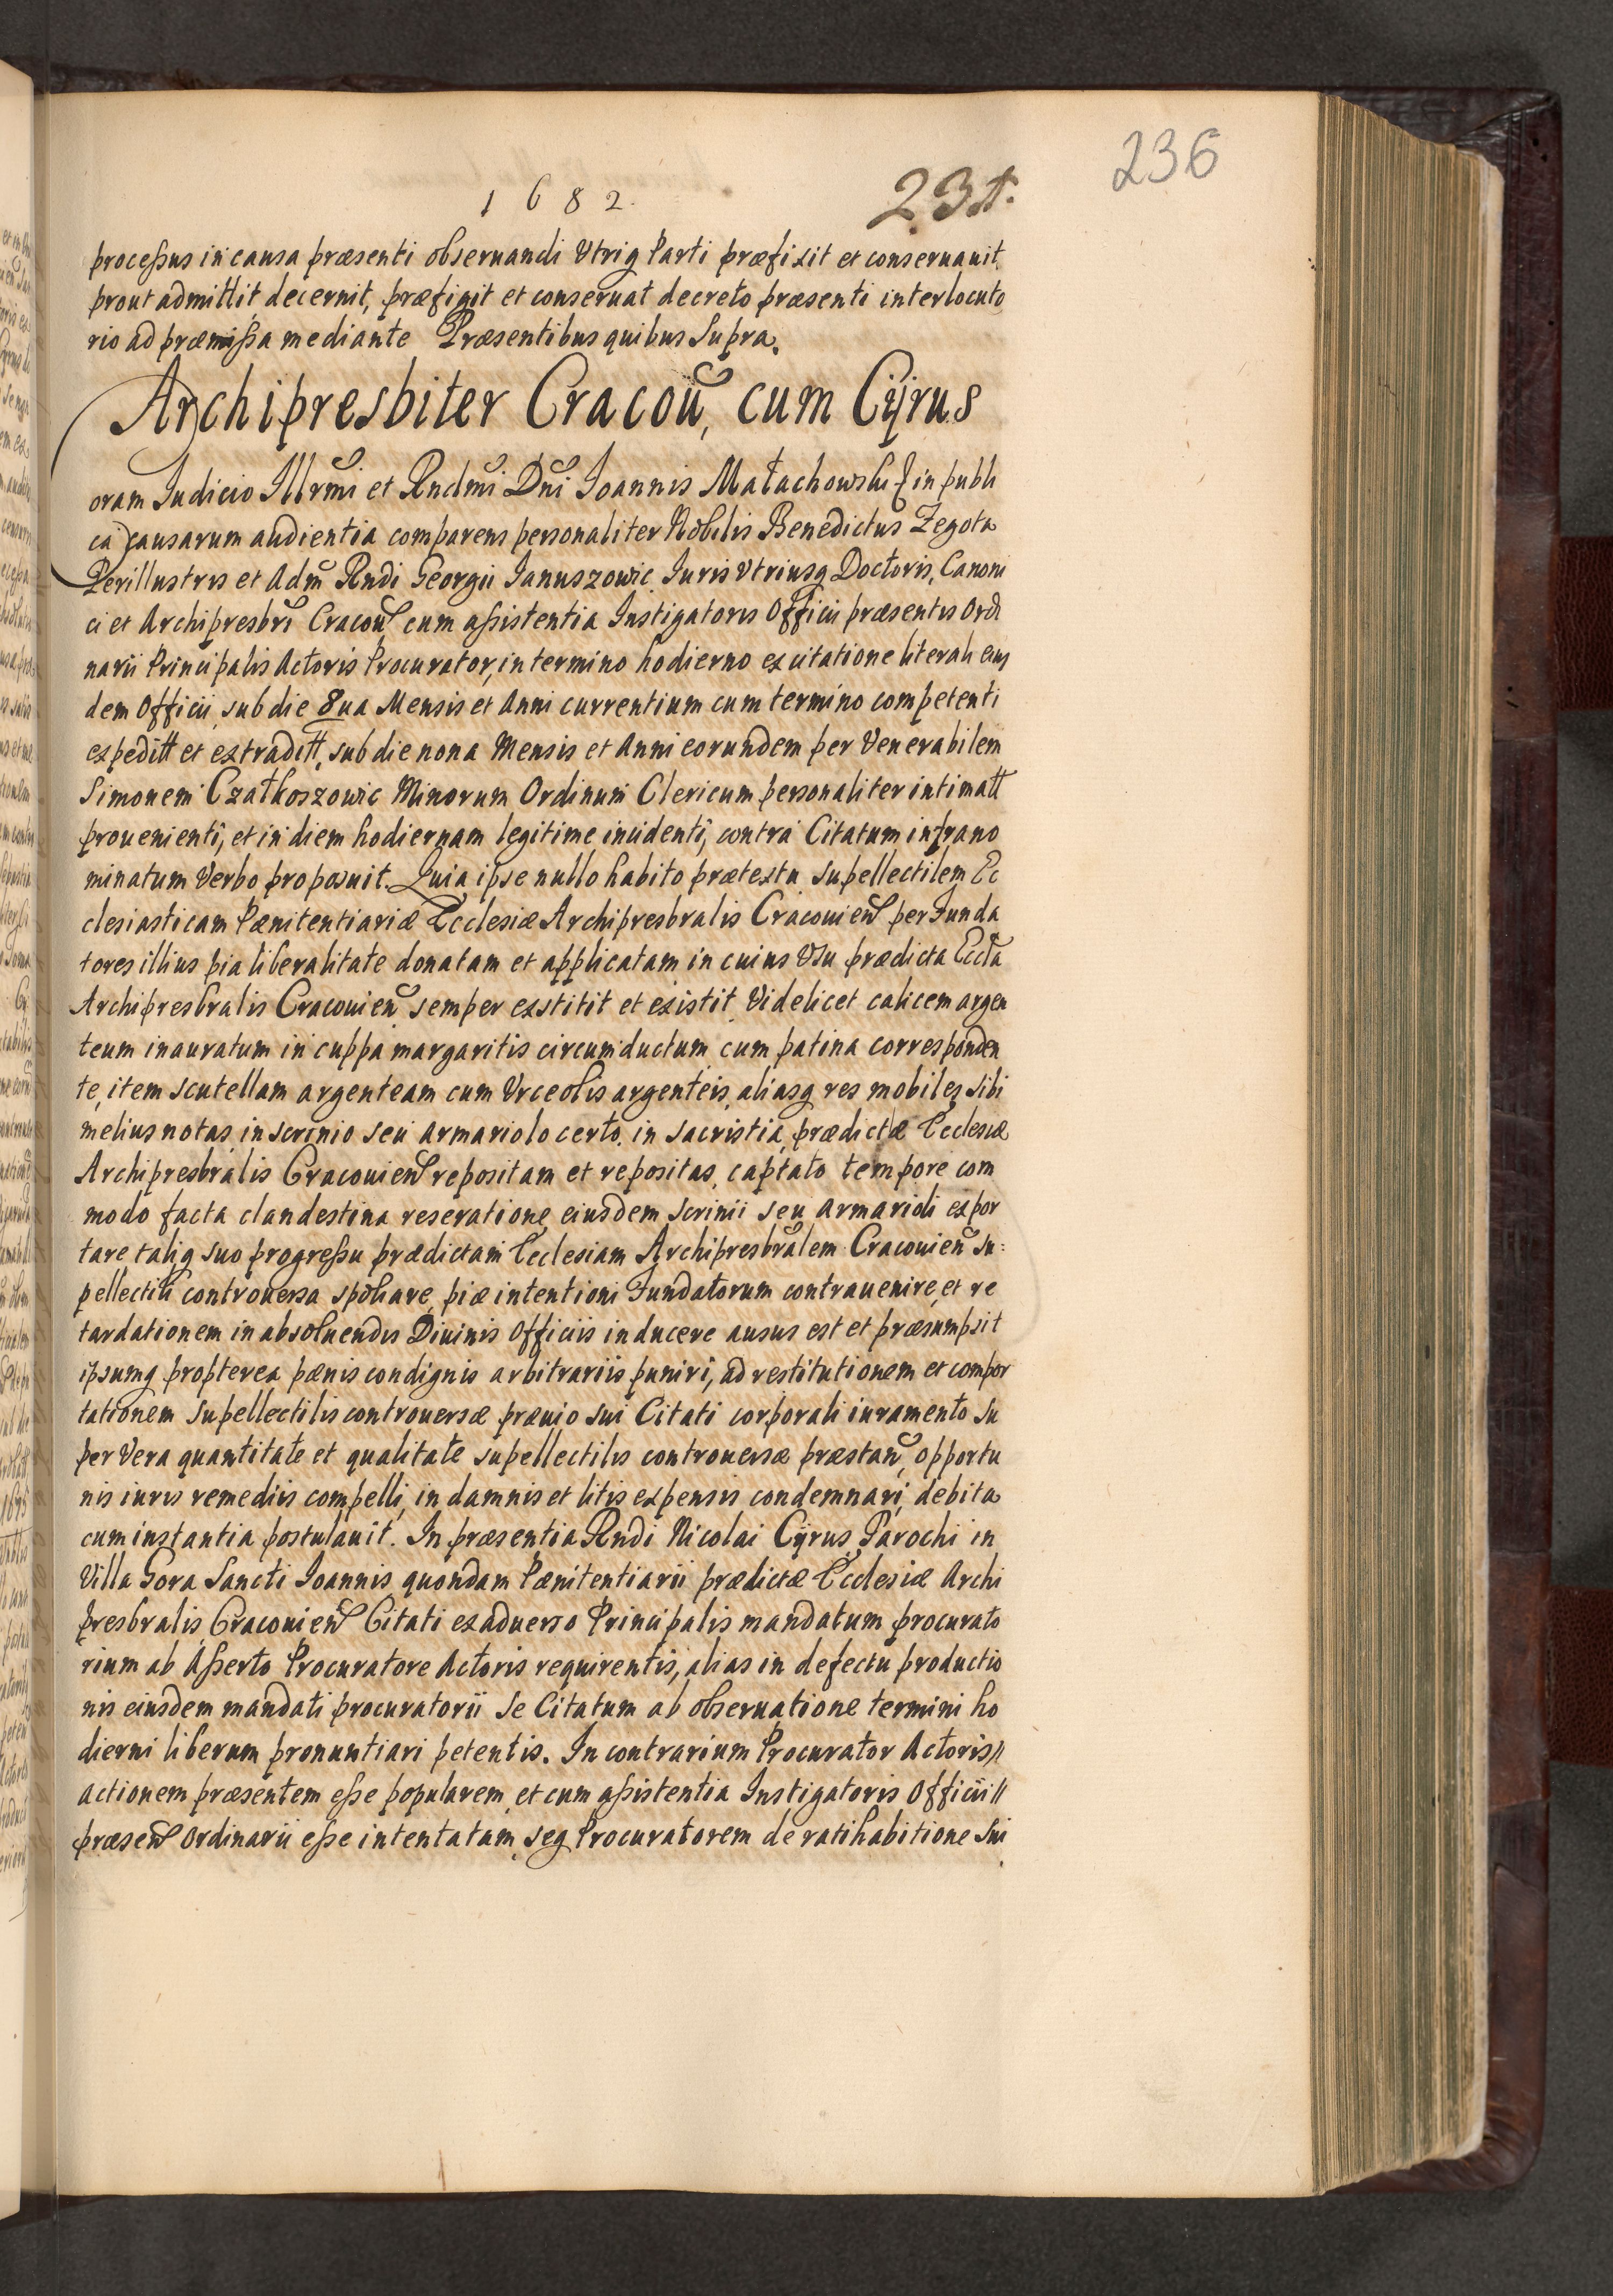 236
1682.
processus in causa præsenti obseruandi Vtriq Parti præfixit et conseruauit,
prout admittit decernit, præfigit et conseruat decreto præsenti interlocuto
rio ad præmissa mediante Præsentibus quibus Supra.
Archipresbiter Cracou, cum Cÿrus
Coram Iudicio Illrmi et Rndmi Dni Ioannis Małachowski in publi
ca causarum audientia comparens personaliter Nobilis Benedictus Zegota
Perillustris et Adm Rndi Georgii Ianuszowic Iuris Vtriusq Doctoris, Canoni
ci et Archipresbri Cracou cum assistentia Instigatoris Officii præsentis Ordi
narii Principalis Actoris Procurator, in termino hodierno ex citatione literali eius
dem Officii, sub die 8ua Mensis et Anni currentium cum termino competenti
expeditt et extraditt, sub die nona Mensis et Anni eorundem per Venerabilem
Simonem Czałkoszowic Minorum Ordinum Clericum personaliter intimatt
prouenienti, et in diem hodiernam legitime incidenti, contra Citatum infrano
minatum Verbo proposuit. Quia ipse nullo habito prætextu supellectilem Ec
clesiasticam Pænitentiariæ Ecclesiæ Archipresbralis Cracouien per Funda
tores illius pia liberalitate donatam et applicatam in cuius Vsu prædicta Eccla
Archipresbralis Cracouien semper exstitit et existit, Videlicet calicem argen
teum inauratum in cuppa margaritis circumductum, cum patina corresponden
te, item scutellam argenteam cum Vrceolis argenteis, aliasq res mobiles sibi
melius notas, in scrinio seu armariolo certo, in sacristia, prædictæ Ecclesiæ
Archipresbralis Cracouien repositam et repositas, captato tempore com
modo facta clandestina reseratione, eiusdem scrinii seu armarioli expor
tare taliq suo progressu prædictam Ecclesiam Archipresbralem Cracouien su:
pellectili controuersa spoliare, piæ intentioni Fundatorum contrauenire, et re
tardationem in absoluendis Diuinis Officiis inducere ausus est et præsumpsit
ipsumq propterea pænis condignis arbitrariis puniri, ad restitutionem et compor
tationem supellectilis controuersæ præuio sui Citati corporali iuramento su
per Vera quantitate et qualitate supellectilis controuersæ præstan, opportu
nis iuris remediis compelli, in damnis et litis expensis condemnari, debita
cum instantia postulauit. In præsentia Rndi Nicolai Cÿrus, Parochi in
Villa Gora Sancti Ioannis quondam Pænitentiarii prædictæ Ecclesiæ Archi
presbralis Cracouien Citati ex aduerso Principalis mandatum procurato
rium ab Asserto Procuratore Actoris requirentis, alias in defectu productio
nis eiusdem mandati procuratorii se Citatum ab obseruatione termini ho
dierni liberum pronuntiari petentis. In contrarium Procurator Actoris //
actionem præsentem esse popularem, et cum assistentia Instigatoris Officii //
præsen Ordinarii esse intentatam, seq Procuratorem de ratihabitione sui